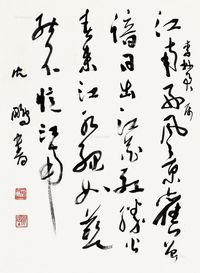 江南好風景舊曾
諳日出江花紅勝火
春來江水綠如藍
能不憶江南
沈鵬書